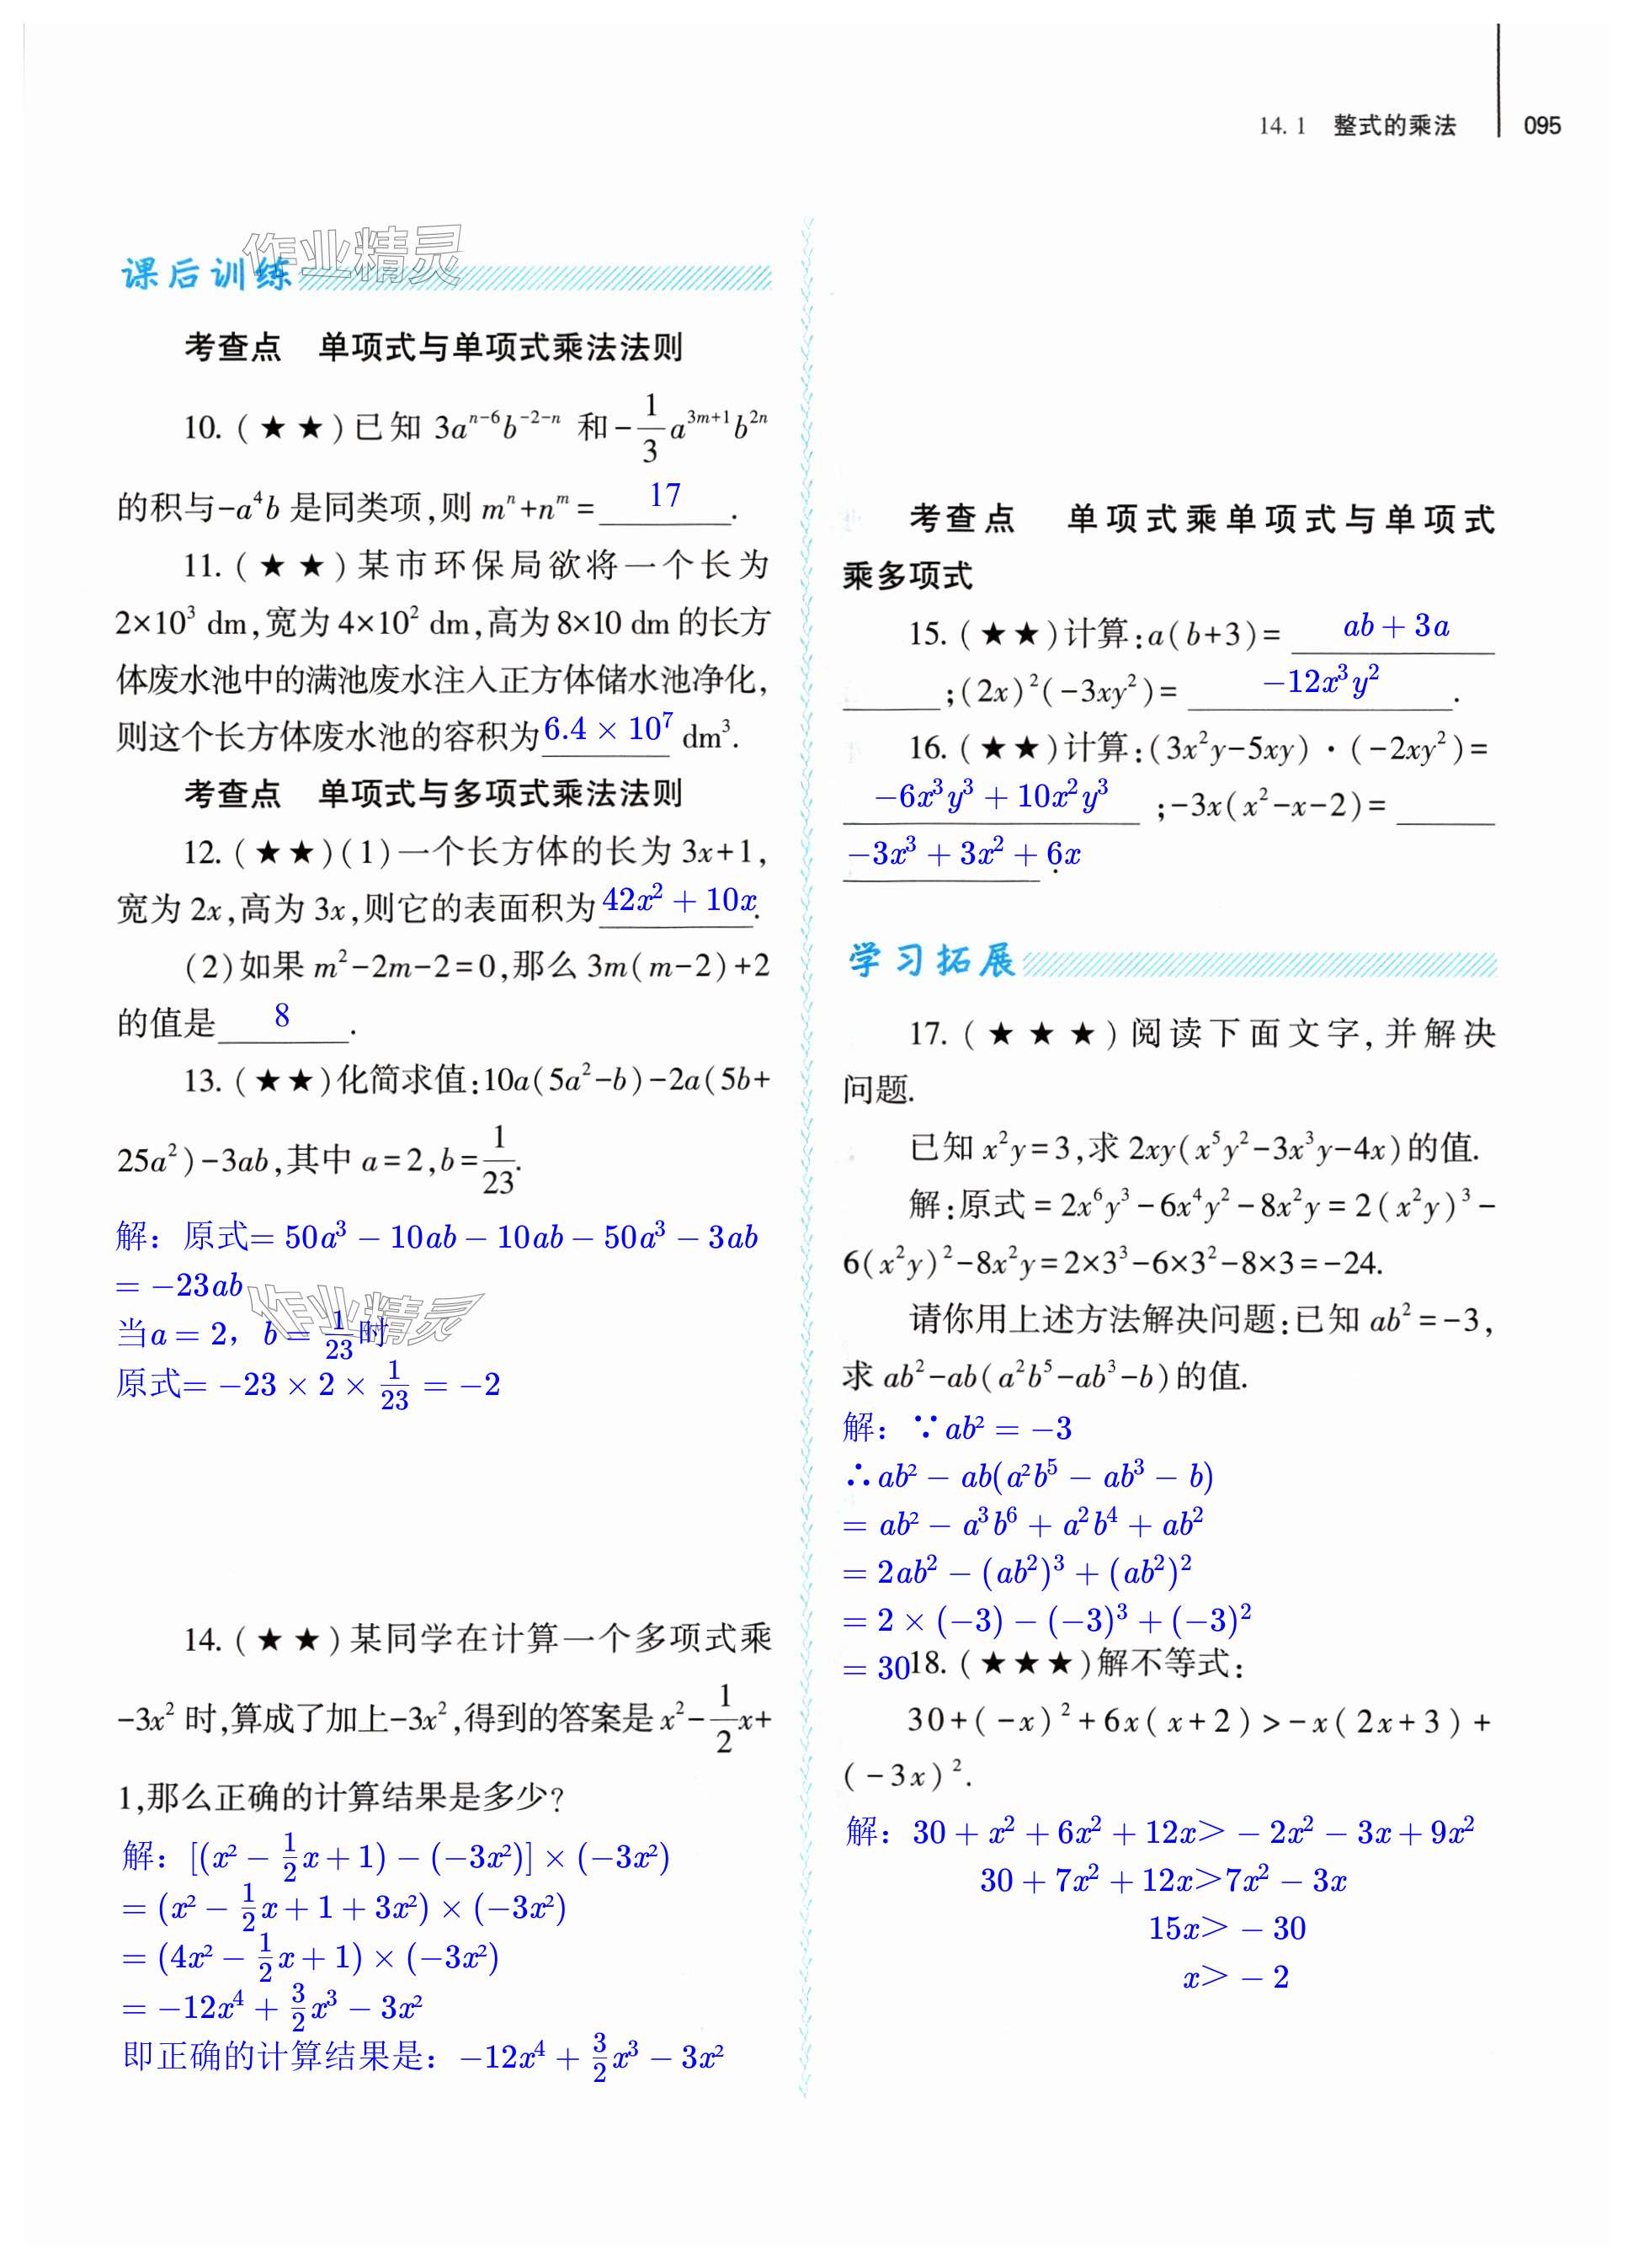 14.1 整式的乘法 095
作业精灵
课后训练
考查点 单项式与单项式乘法法则
10. (★★)已知 3aⁿ⁻⁶b⁻²⁻ⁿ 和 -1/3 a³ᵐ⁺¹b²ⁿ
的积与-a⁴b 是同类项,则 mⁿ+nᵐ= 17 .
11. (★★)某市环保局欲将一个长为
2×10³ dm,宽为 4×10² dm,高为 8×10 dm 的长方
体废水池中的满池废水注入正方体储水池净化,
则这个长方体废水池的容积为 6.4 × 10⁷ dm³.
考查点 单项式与多项式乘法法则
12. (★★)(1)一个长方体的长为 3x+1,
宽为 2x,高为 3x,则它的表面积为 42x² + 10x.
(2)如果 m²-2m-2=0,那么 3m(m-2)+2
的值是 8 .
13. (★★)化简求值:10a(5a²-b)-2a(5b+
25a²)-3ab,其中 a=2,b=1/23.
解：原式= 50a³ − 10ab − 10ab − 50a³ − 3ab
= −23ab
作业精灵
当a = 2，b = 1/23时
原式= −23 × 2 × 1/23 = −2
14. (★★)某同学在计算一个多项式乘
-3x² 时,算成了加上-3x²,得到的答案是 x²-1/2x+
1,那么正确的计算结果是多少?
解：[(x² − 1/2x + 1) − (−3x²)] × (−3x²)
= (x² − 1/2x + 1 + 3x²) × (−3x²)
= (4x² − 1/2x + 1) × (−3x²)
= −12x⁴ + 3/2x³ − 3x²
即正确的计算结果是：−12x⁴ + 3/2x³ − 3x²
考查点 单项式乘单项式与单项式
乘多项式
15. (★★)计算:a(b+3)= ab + 3a
;(2x)²(-3xy²)= −12x³y² .
16. (★★)计算:(3x²y-5xy)·(-2xy²)=
−6x³y³ + 10x²y³ ;-3x(x²-x-2)=
−3x³ + 3x² + 6x .
学习拓展
17. (★★★)阅读下面文字,并解决
问题.
已知 x²y=3,求 2xy(x⁵y²-3x³y-4x)的值.
解:原式=2x⁶y³-6x⁴y²-8x²y=2(x²y)³-
6(x²y)²-8x²y=2×3³-6×3²-8×3=-24.
请你用上述方法解决问题:已知 ab²=-3,
求 ab²-ab(a²b⁵-ab³-b)的值.
解：∵ab² = −3
∴ab² − ab(a²b⁵ − ab³ − b)
= ab² − a³b⁶ + a²b⁴ + ab²
= 2ab² − (ab²)³ + (ab²)²
= 2 × (−3) − (−3)³ + (−3)²
= 30
18. (★★★)解不等式:
30+(-x)²+6x(x+2)>-x(2x+3)+
(-3x)².
解：30 + x² + 6x² + 12x> − 2x² − 3x + 9x²
30 + 7x² + 12x>7x² − 3x
15x> − 30
x> − 2